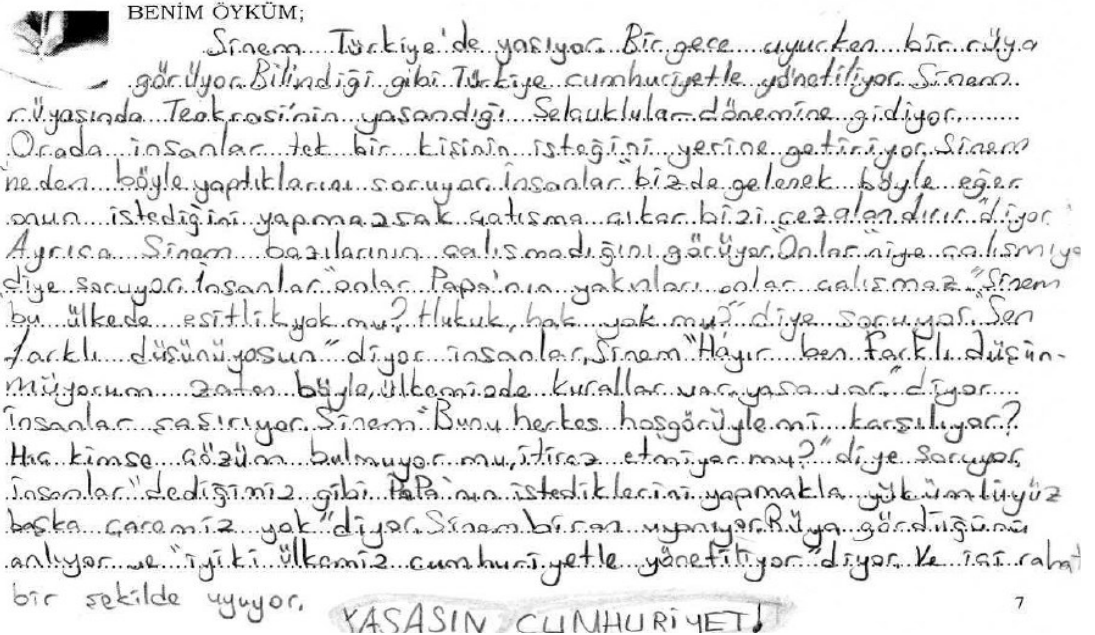 BENİM ÖYKÜM;
Sinem Türkiye'de yaşıyor. Bir gece uyurken bir rüya
görüyor. Bilindiği gibi Türkiye cumhuriyetle yönetiliyor. Sinem
rüyasında Teokrasi'nin yaşandığı Selçuklular dönemine gidiyor.
Orada insanlar tek bir kişinin isteğini yerine getiriyor. Sinem
neden böyle yaptıklarını soruyor. İnsanlar "bizde gelenek böyle eğer
onun istediğini yapmazsak çatışma çıkar bizi cezalandırır" diyor.
Ayrıca Sinem bazılarının çalışmadığını görüyor. "Onlar niye çalışmıyo
diye soruyor. İnsanlar "onlar Papa'nın yakınları onlar çalışmaz." Sinem
bu ülkede eşitlik yok mu? Hukuk, hak yok mu?" diye soruyor. "Sen
farklı düşünüyosun" diyor insanlar. Sinem "Hayır ben farklı düşün-
müyorum zaten böyle, ülkemizde kurallar var, yasa var." diyor
İnsanlar şaşırıyor. Sinem "Bunu herkes hoşgörüyle mi karşılıyor?
Hiç kimse çözüm bulmuyor mu, itiraz etmiyor mu?" diye soruyor.
İnsanlar "dediğimiz gibi Papa'nın istediklerini yapmakla yükümlüyüz
başka çaremiz yok" diyor. Sinem biran uyanıyor. Rüya gördüğünü
anlıyor ve "iyiki ülkemiz cumhuriyetle yönetiliyor" diyor. Ve içi rahat
bir şekilde uyuyor.
YAŞASIN CUMHURİYET!
7